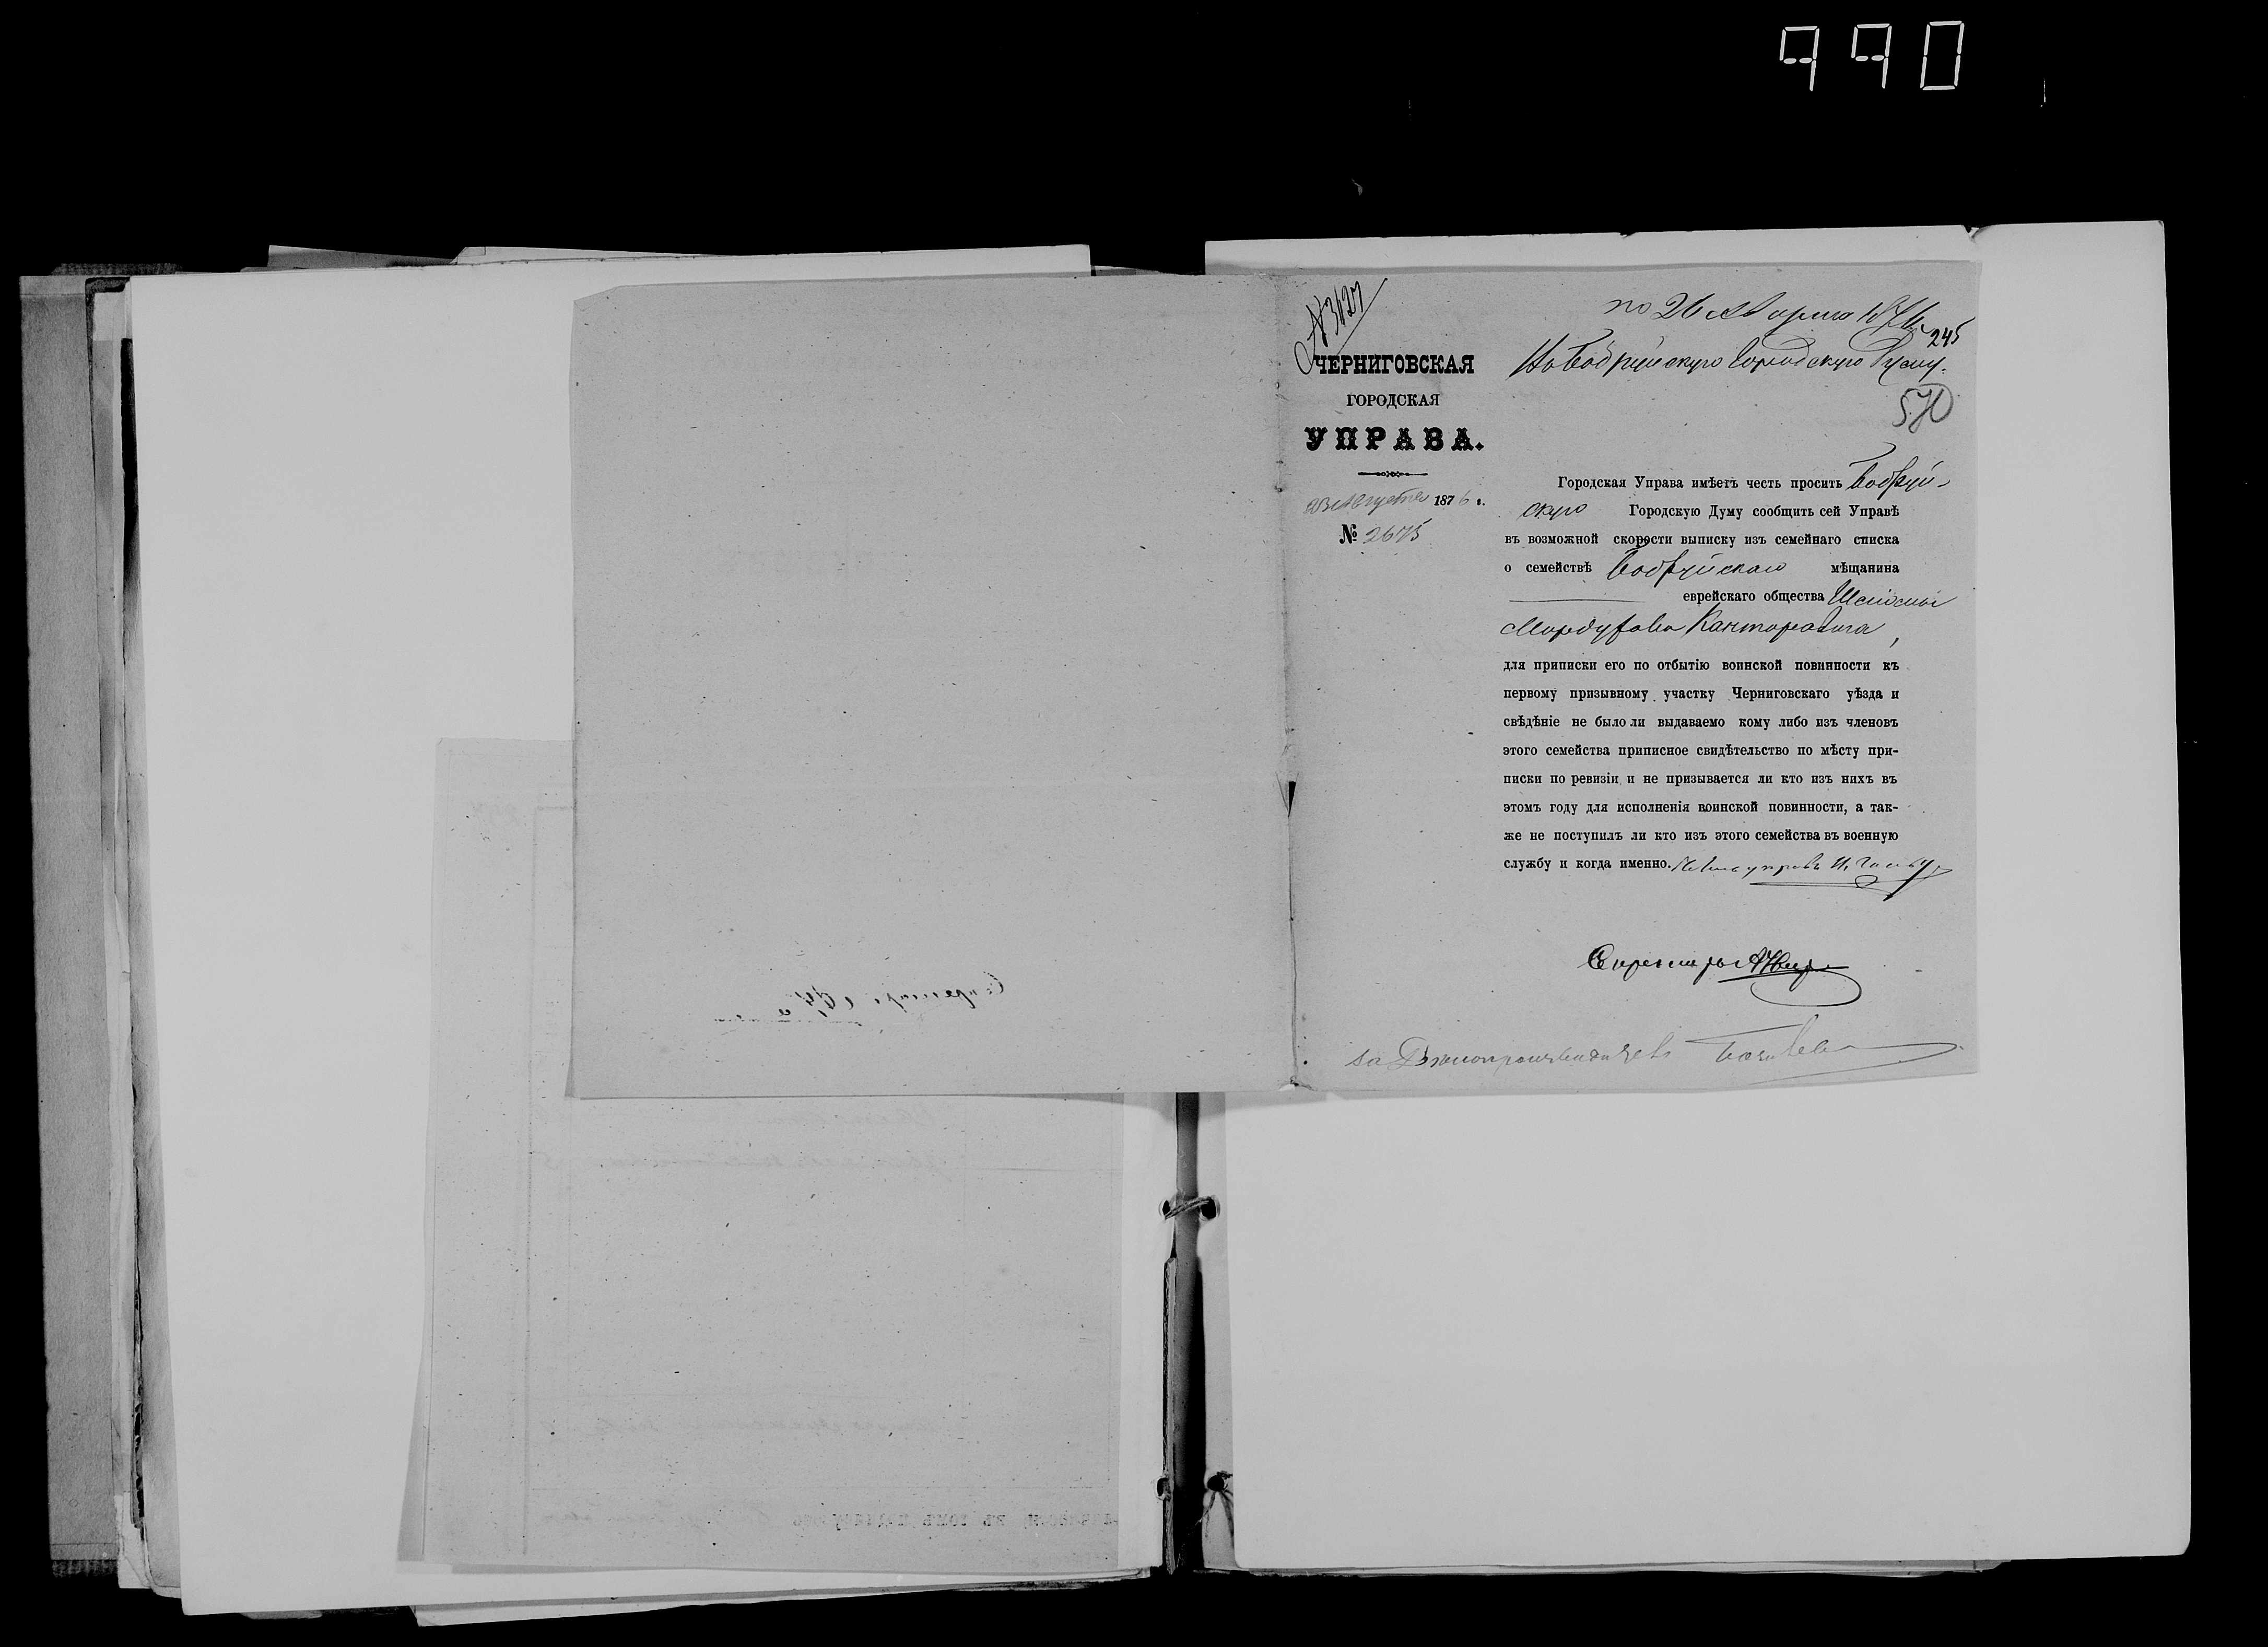 990
№3427
по 26 Августа 1876 г.
245
ЧЕРНИГОВСКАЯ
ГОРОДСКАЯ
УПРАВА.
Въ Бобруйскую Городскую Думу.
570
23 Августа 1876 г.
№ 2675
Городская Управа имѣетъ честь просить Бобруй-
скую Городскую Думу сообщить сей Управѣ
въ возможной скорости выписку изъ семейнаго списка
о семействѣ Бобруйскаго мѣщанина
еврейскаго общества Шлиомы
Мордухова Канторовича,
для приписки его по отбытію воинской повинности къ
первому призывному участку Черниговскаго уѣзда и
свѣдѣніе не было ли выдаваемо кому либо изъ членовъ
этого семейства приписное свидѣтельство по мѣсту при-
писки по ревизіи и не призывается ли кто изъ нихъ въ
этомъ году для исполненія воинской повинности, а так-
же не поступилъ ли кто изъ этого семейства въ военную
службу и когда именно.
Секретарь
за Дѣлопроизводителя